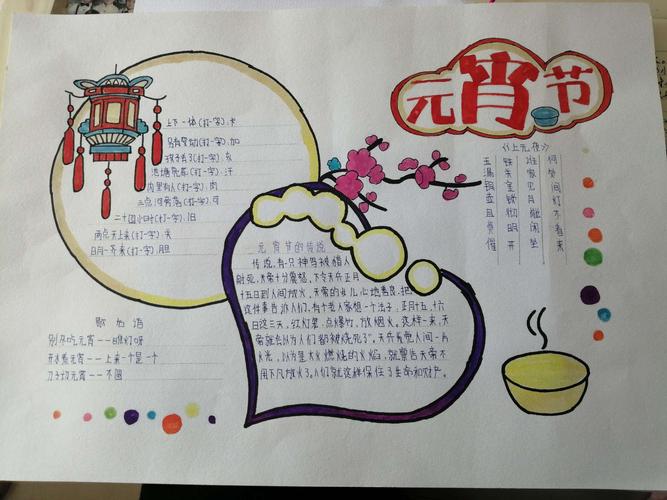 元宵节
《上元夜》
玉漏银壶且莫催
铁关金锁彻明开
谁家见月能闲坐
何处闻灯不看来
上下一体(打一字):卡
另有变动(打一字):加
孩子丢了(打一字):亥
池塘亮底(打一字):汗
内里有人(打一字):肉
三点河旁落(打一字):可
二十四小时(打一字):旧
两点天上来(打一字):关
日月一齐来(打一字):胆
元宵节的传说
传说,有一只神鸟被猎人
射死,天帝十分震怒、下令天兵正月
十五日到人间放火,天帝的女儿心地善良,把
这件事告诉人们,有个老人家想一个法子,正月十五、十六
日这三天,红灯笼、点爆竹、放烟火。这样一来,天
帝就会以为人们都被烧死了"。天兵看见人间一片
火光,以为是大火燃烧的火焰,就禀告天帝不
用下凡放火了。人们就这样保住了生命和财产。
歇后语
吃元宵——瞧灯呀
开水煮元宵——上来一个是一个
刀子切元宵——不圆